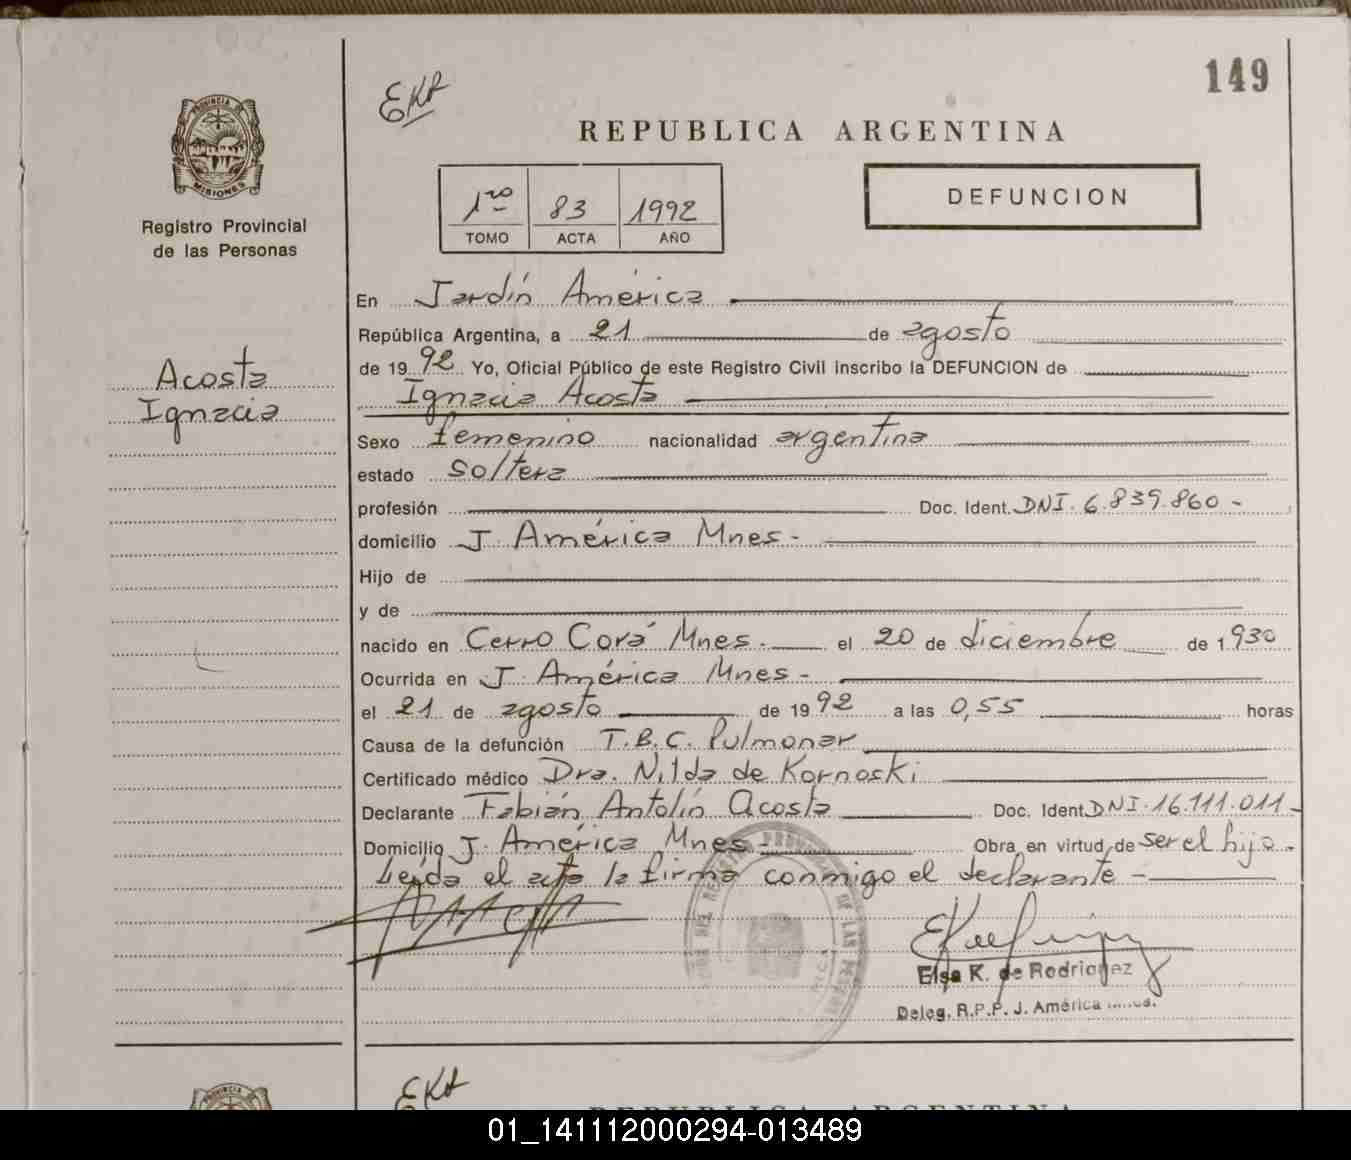 149
EKR
REPUBLICA ARGENTINA
PROVINCIA DE
MISIONES
Registro Provincial
de las Personas
1ro 83 1992
TOMO ACTA AÑO
DEFUNCION
Acosta
Ignacia
En Jardín América
República Argentina, a 21 de agosto
de 1992 Yo, Oficial Público de este Registro Civil inscribo la DEFUNCION de
Ignacia Acosta
Sexo femenino nacionalidad argentina
estado soltera
profesión Doc. Ident. DNI. 6.839.860 -
domicilio J. América Mnes -
Hijo de
y de
nacido en Cerro Corá Mnes. el 20 de diciembre de 1930
Ocurrida en J. América Mnes -
el 21 de agosto de 1992 a las 0,55 horas
Causa de la defunción T.B.C. Pulmonar
Certificado médico Dra. Nilda de Kornoski
Declarante Fabián Antolín Acosta Doc. Ident. DNI. 16.111.011 -
Domicilio J. América Mnes - Obra en virtud de ser el hijo -
Leída el acta la firma conmigo el declarante -
Elsa K. de Rodriguez
Deleg. R.P.P. J. América Mnes.
EKR
PROVINCIA
REPUBLICA ARGENTINA
01_141112000294-013489